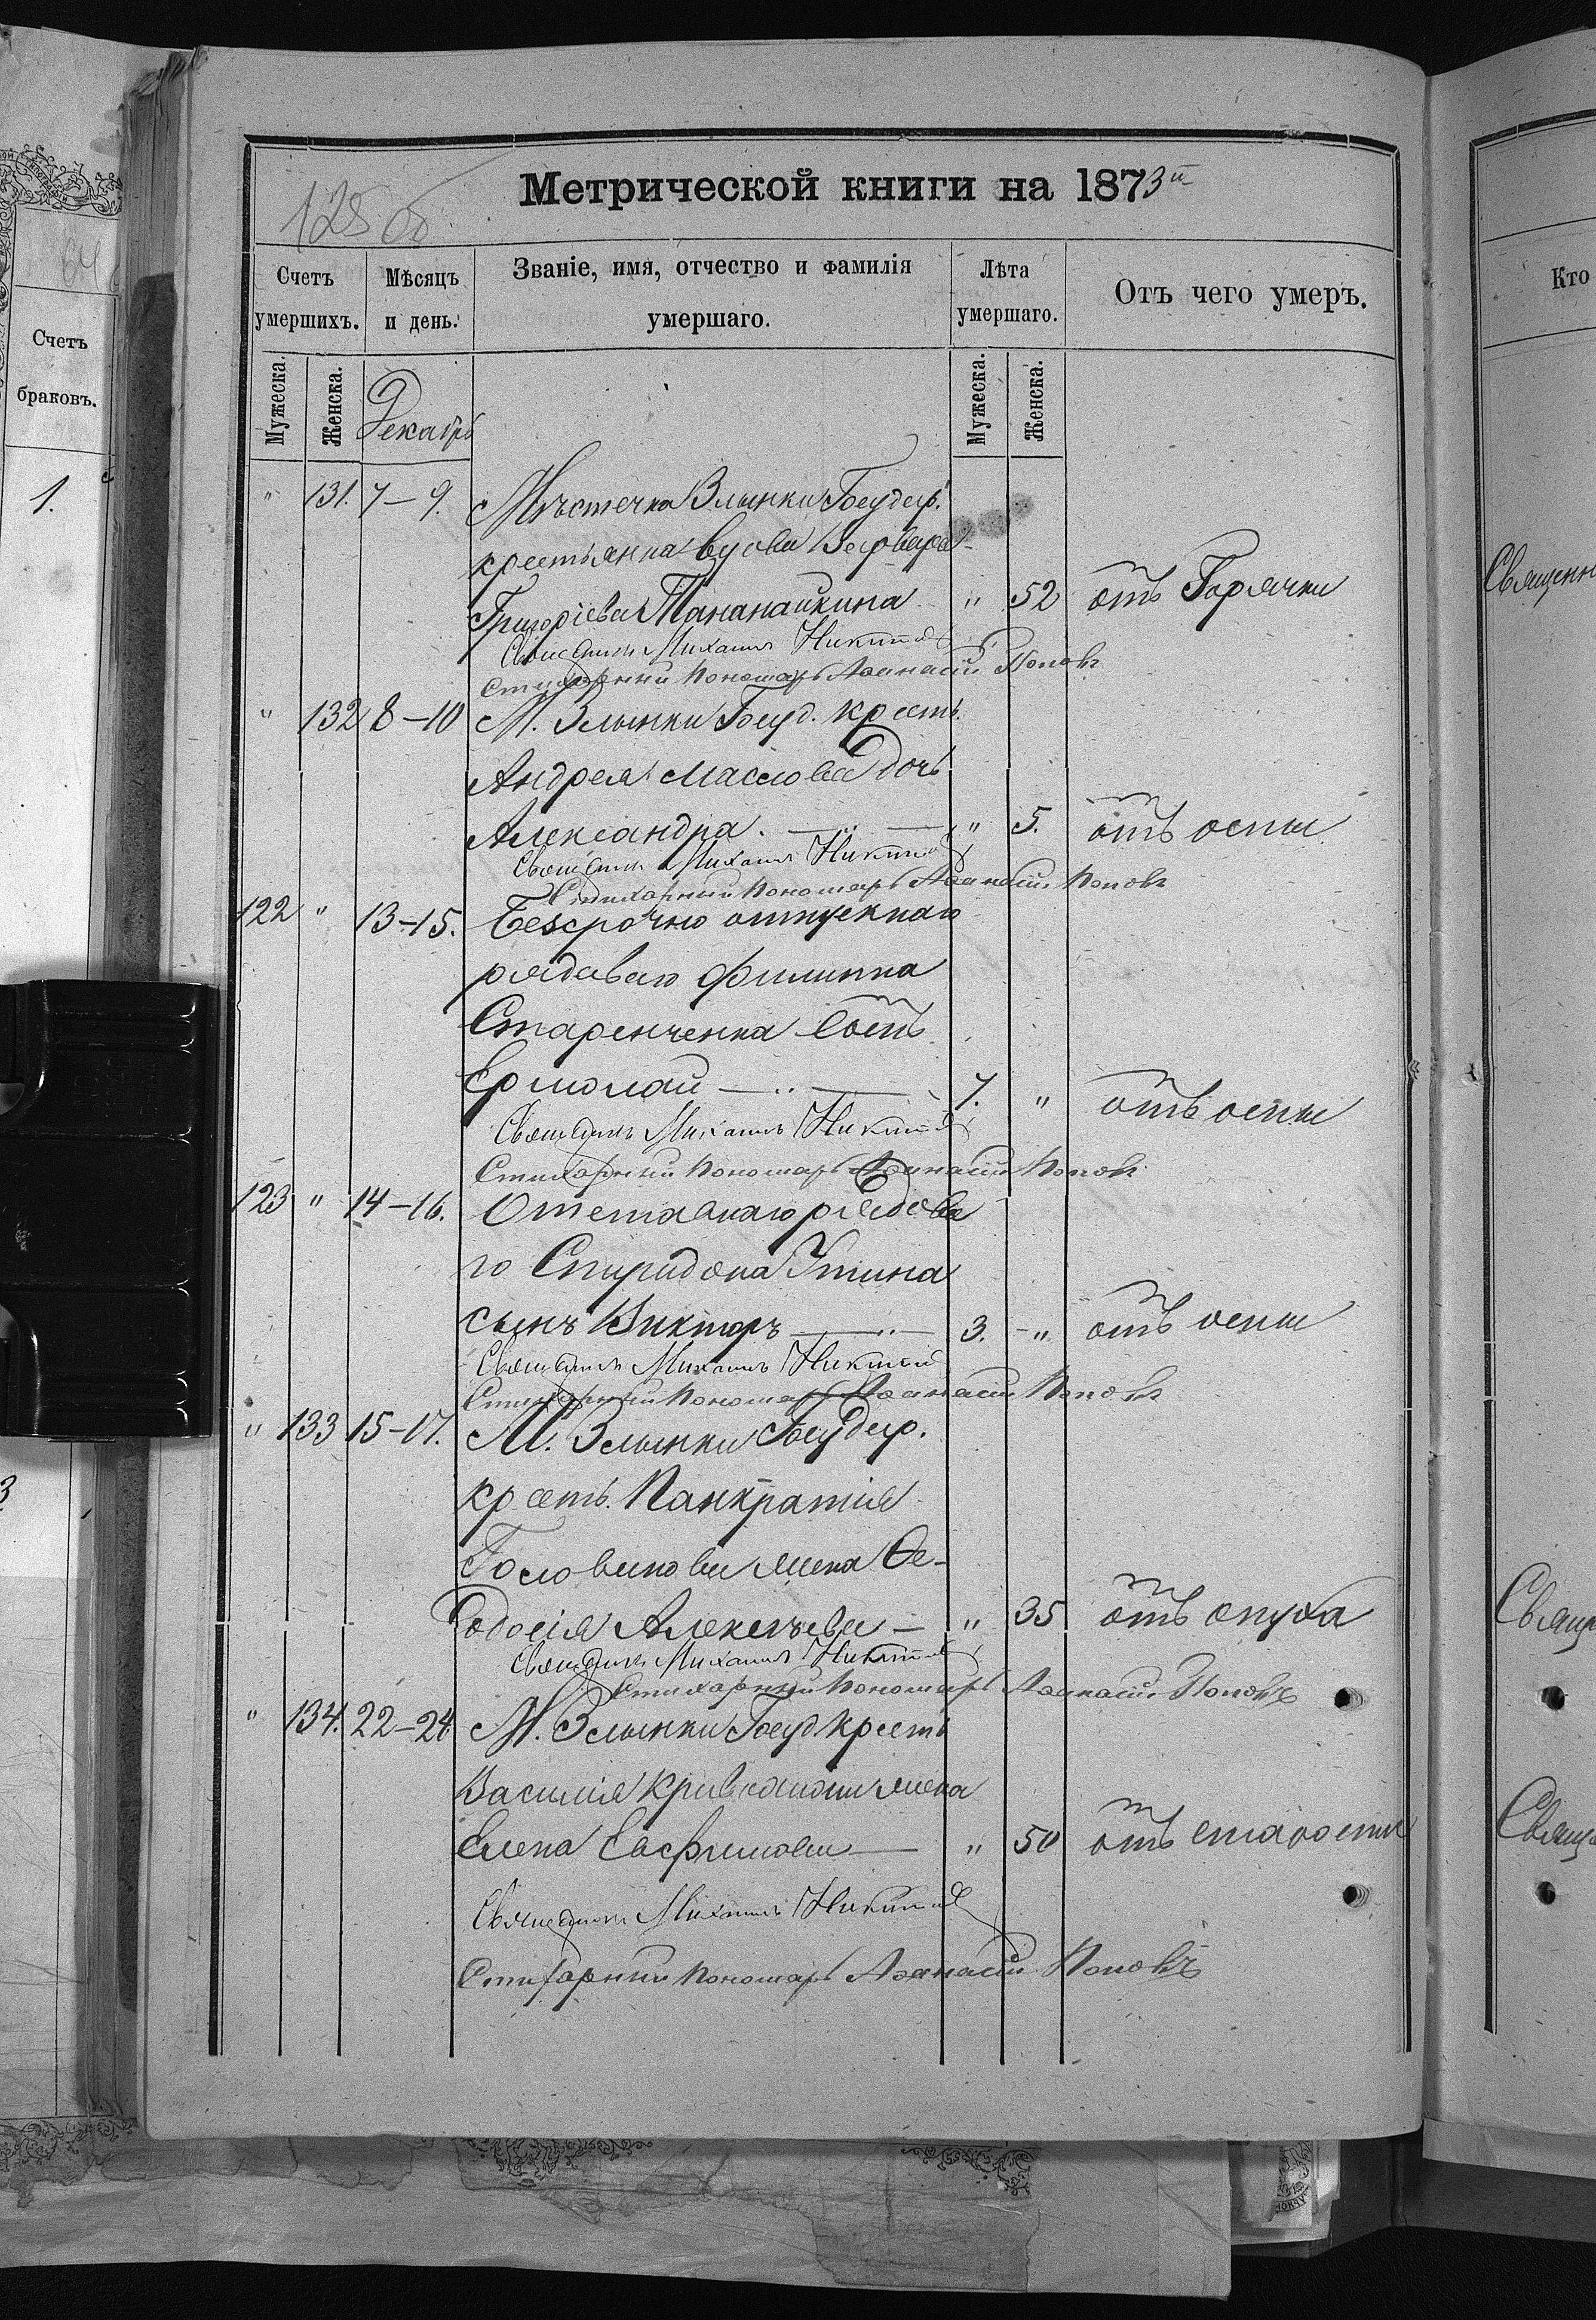 Метрической книги на 1873й
128 об
Счетъ умершихъ.
Мѣсяцъ и день.
Званіе, имя, отчество и фамилія умершаго.
Лѣта умершаго.
Отъ чего умеръ.
Мужеска.
Женска.
Декабрь
Мужеска.
Женска.
" 131. 7–9. Мѣстечка Злынки Государ.
крестьянка вдова Варвара
Григоріева Тананайкина " 52 отъ Горячки
Священникъ Михаилъ Никит
Стихарный Пономарь Аѳанасій Поповъ
" 132 8–10 М. Злынки Госуд. крест.
Андрея Маслова дочь
Александра. " 5. отъ оспы
Священникъ Михаилъ Никит
Стихарный Пономарь Аѳанасій Поповъ
122 " 13–15. Безсрочно отпускнаго
рядоваго Филиппа
Старенченка сынъ
Ермолай 7. " отъ оспы
Священникъ Михаилъ Никит
Стихарный Пономарь Аѳанасій Поповъ
123 " 14–16. Отставнаго рядова
го Спиридона Утина
сынъ Викторъ 3. " отъ оспы
Священникъ Михаилъ Никит
Стихарный Пономарь Аѳанасій Поповъ
" 133 15–17. М. Злынки Государ.
крест. Панкратія
Головинова жена Ѳе-
одосія Алексѣева " 35 отъ опуха
Священникъ Михаилъ Никит
Стихарный Пономарь Аѳанасій Поповъ
" 134. 22–24. М. Злынки Госуд. крест.
Василія жена
Елена Евфимова " 50 отъ старости
Священникъ Михаилъ Никит
Стихарный Пономарь Аѳанасій Поповъ
Счетъ
браковъ.
1.
64
3
Кто
Священн
Свящ
Свящ